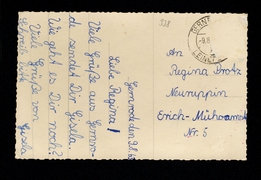 528
GERNR
-9.8
Gernrode den 9.8.63
Liebe Regina!
Viele Grüße aus Gernro-
de sendet Dir Gisela.
Wie geht es Dir noch?
Viele Grüße von
Gisela
An
Regina Brotz
Neuruppin
Erich-Mühsam
Nr. 5